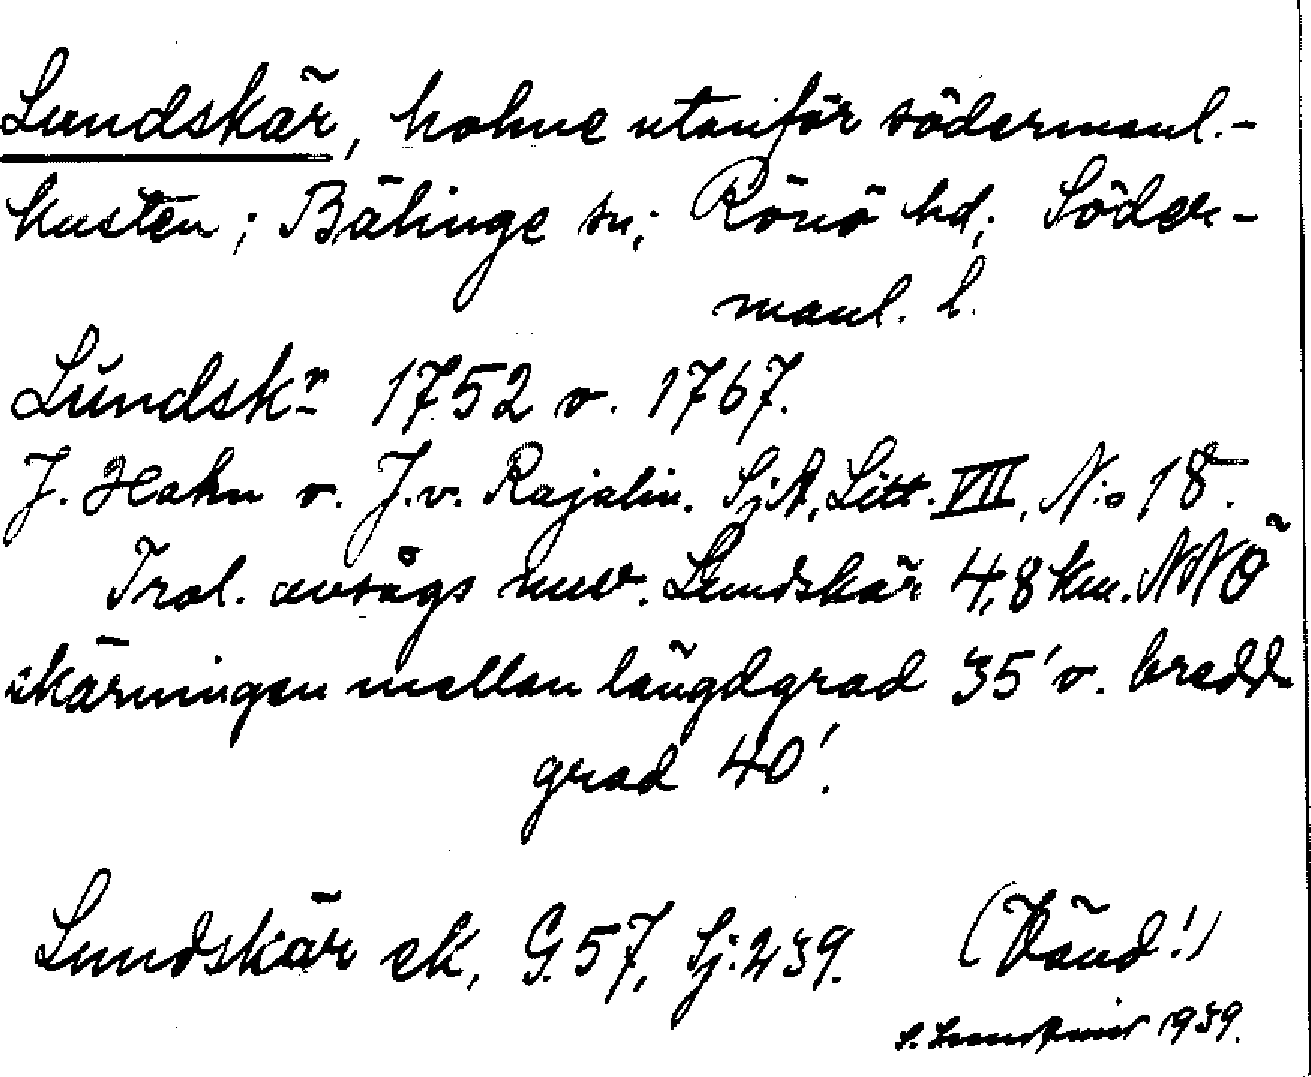 Lundskär, holme utanför södermanl.-
kusten; Bälinge sn; Rönö hd; Söder-
manl. l.
Lundskr 1752 o. 1767.
J. Hahn o. J. v. Rajalin. SjA, Litt. VII, N:o 18.
Trol. avsågs nuv. Lundskär 4,8 km. NNÖ
skärningen mellan längdgrad 35' o. bredd-
grad 40'.
Lundskär ek, G. 57, Sj: 239. (Vänd!)
S. 1939.